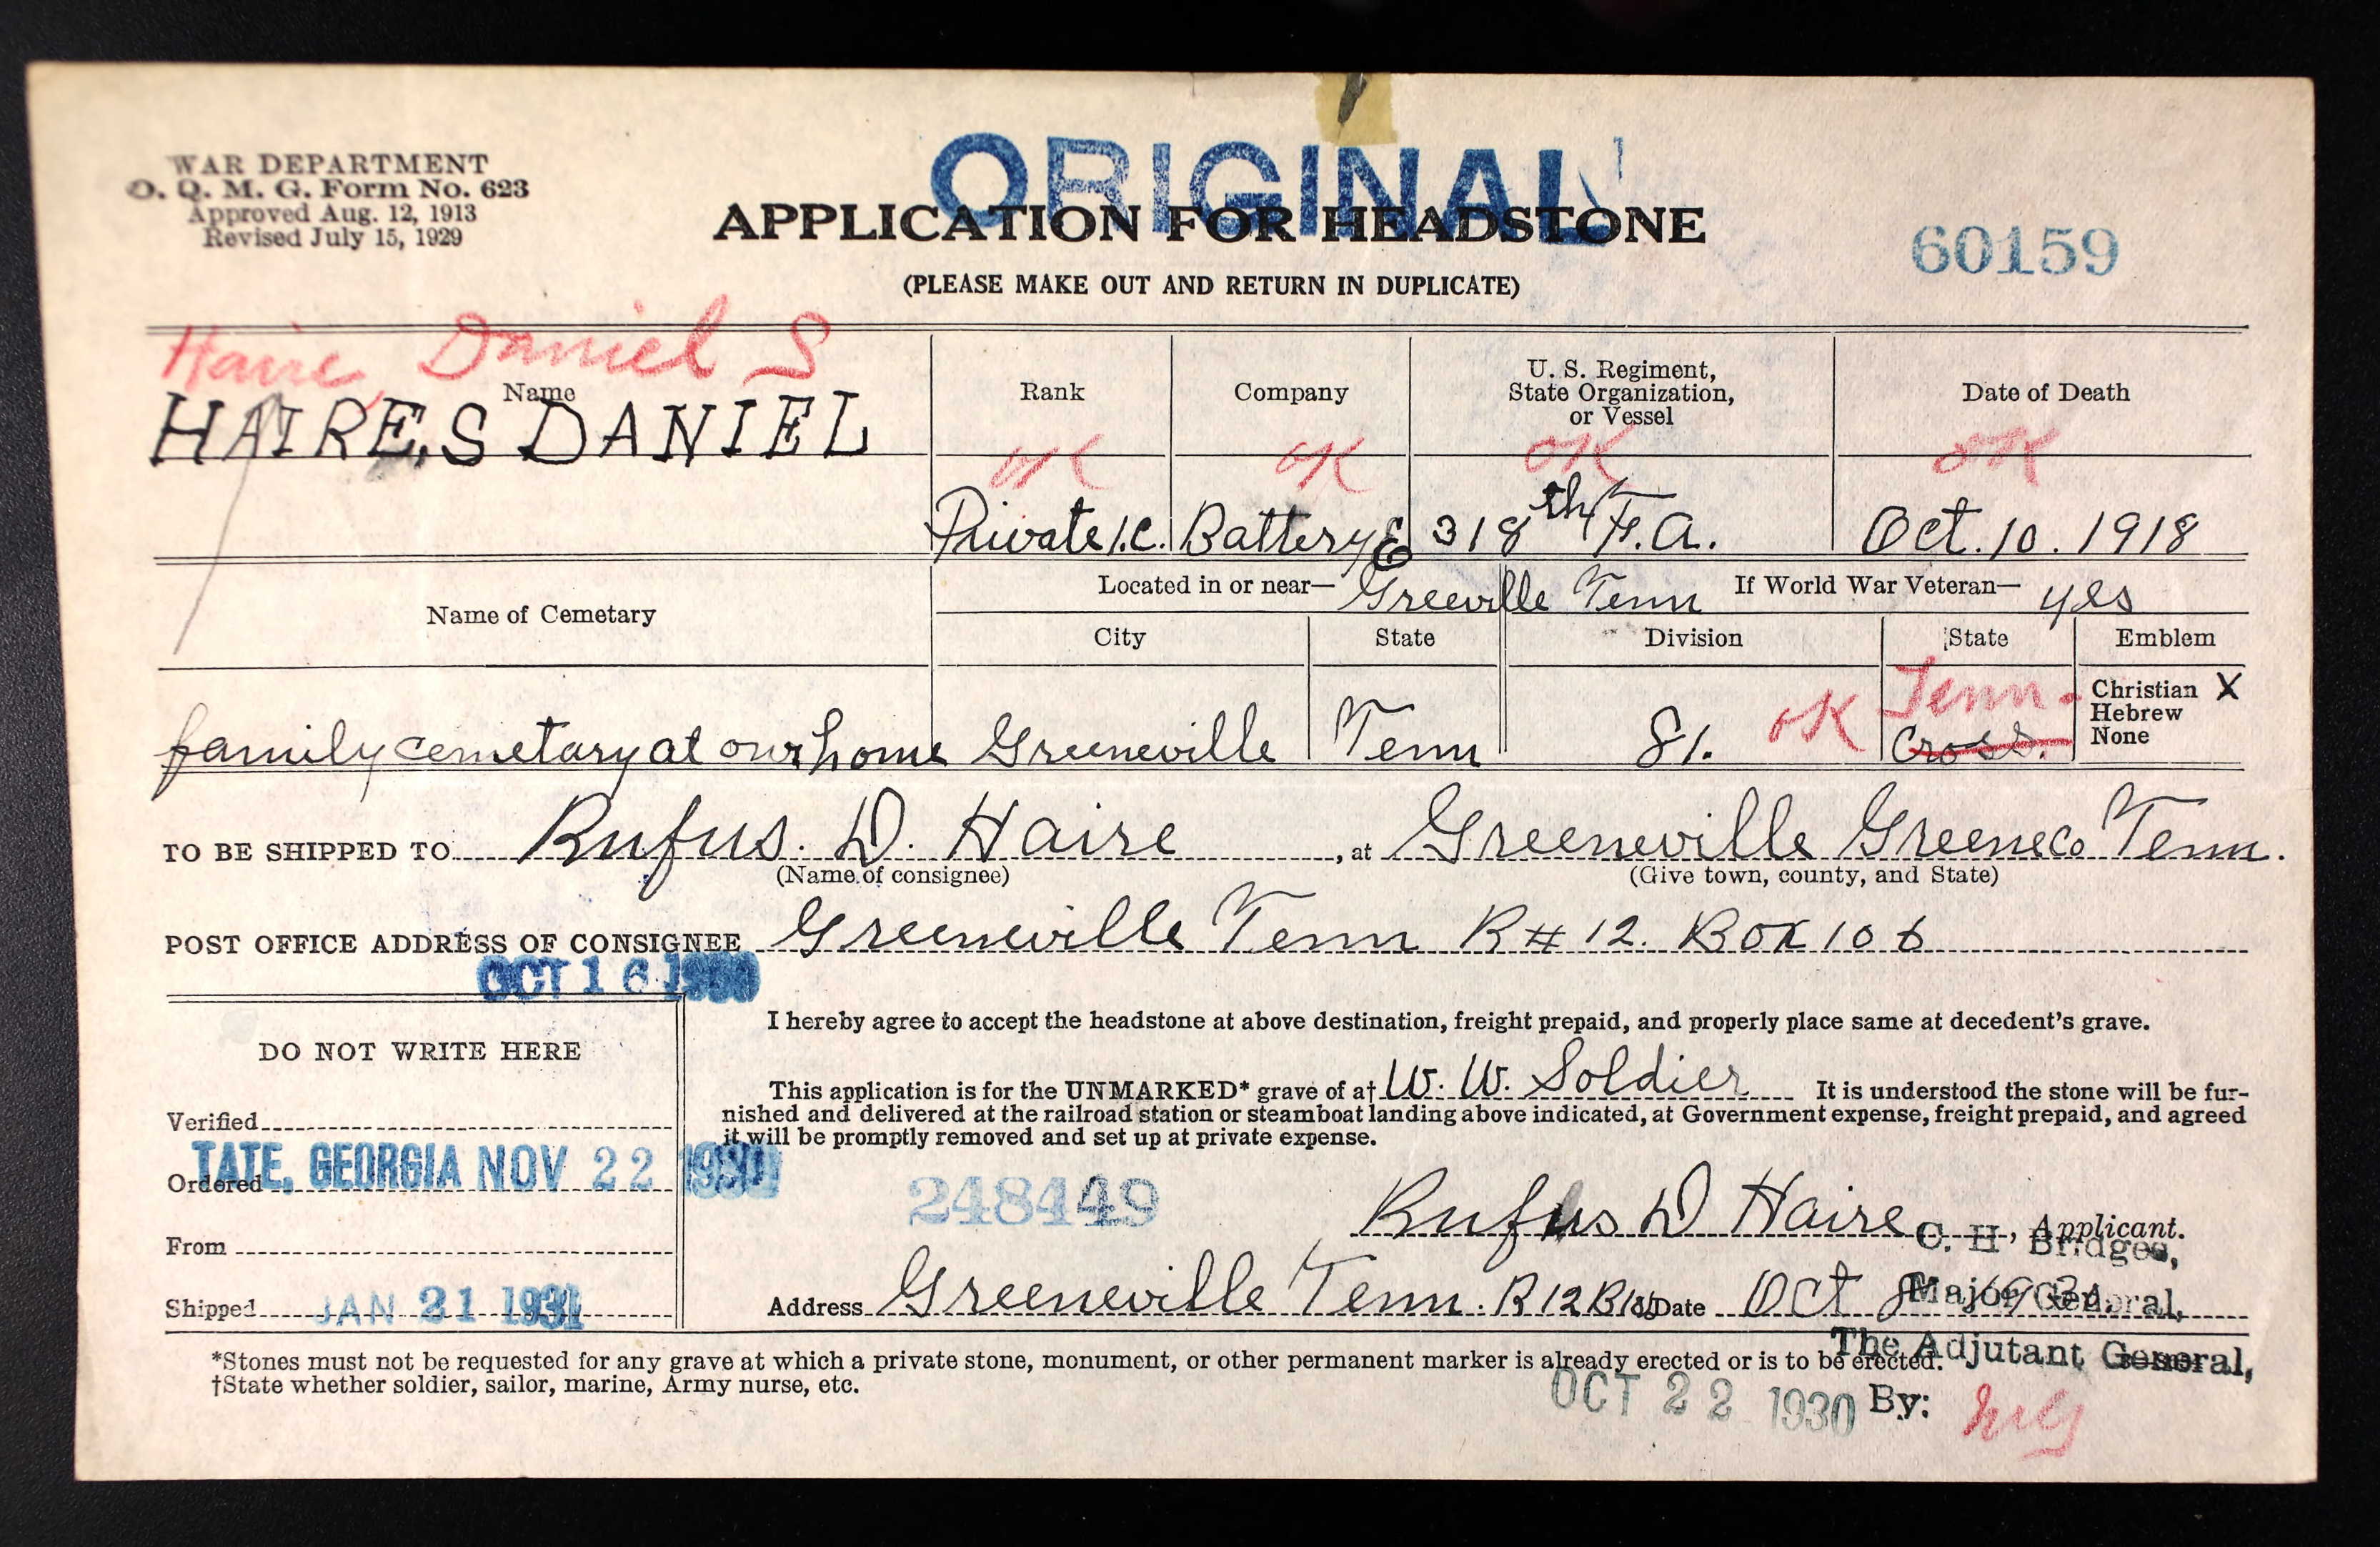 WAR DEPARTMENT
O. Q. M. G. Form No. 623
Approved Aug. 12, 1913
Revised July 15, 1929
ORIGINAL
APPLICATION FOR HEADSTONE
(PLEASE MAKE OUT AND RETURN IN DUPLICATE)
60159
Haire, Daniel S
Name
HAIRE, S DANIEL
Rank
Company
U. S. Regiment,
State Organization,
or Vessel
Date of Death
OK OK OK OK
Private 1.C. Battery E 318th F.A. Oct. 10. 1918
Name of Cemetary
Located in or near— Greeville Tenn If World War Veteran— yes
City State Division State Emblem
family cemetary at our home Greeneville Tenn 81. OK Tenn. Cross.
Christian X
Hebrew
None
TO BE SHIPPED TO Rufus. D. Haire, at Greeneville Greene Co Tenn.
(Name of consignee) (Give town, county, and State)
POST OFFICE ADDRESS OF CONSIGNEE Greeneville Tenn R # 12. Box 106
OCT 16 1930
I hereby agree to accept the headstone at above destination, freight prepaid, and properly place same at decedent's grave.
This application is for the UNMARKED* grave of a† W. W. Soldier It is understood the stone will be fur-
nished and delivered at the railroad station or steamboat landing above indicated, at Government expense, freight prepaid, and agreed
it will be promptly removed and set up at private expense.
DO NOT WRITE HERE
Verified
Ordered TATE, GEORGIA NOV 22 1930
From
Shipped JAN 21 1931
248449
Rufus D Haire, Applicant.
C. H Bridges,
Address Greeneville Tenn. R 12 B 106 Date Oct 1930
Major General,
The Adjutant General,
*Stones must not be requested for any grave at which a private stone, monument, or other permanent marker is already erected or is to be erected.
†State whether soldier, sailor, marine, Army nurse, etc.
OCT 22 1930 By: